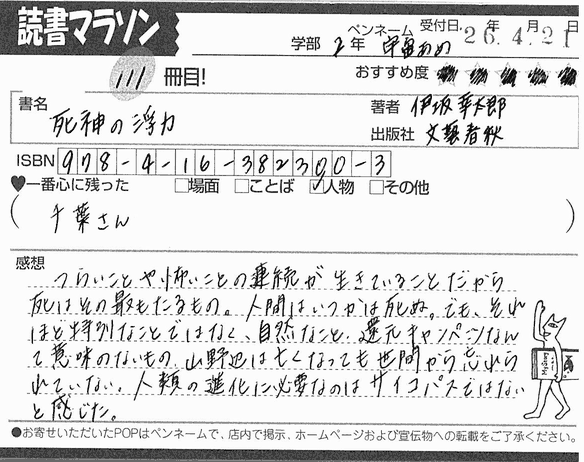 読書マラソン
学部 2年 ペンネーム 宇宙あめ 受付日. 26.年4.月21日
111 冊目! おすすめ度 ★★★★★
書名 死神の浮力
著者 伊坂幸太郎
出版社 文藝春秋
ISBN 978-4-16-382300-3
♥一番心に残った □場面 □ことば ☑人物 □その他
( 千葉さん )
感想
つらいことや怖いことの連続が生きていることだから
死はその最もたるもの。人間はいつかは死ぬ。でも、それ
ほど特別なことではなく、自然なこと、還元キャンペーンなん
て意味のないもの。山野辺は亡くなっても世間から忘れら
れていない。人類の進化に必要なのはサイコパスではない
と感じた。
●お寄せいただいたPOPはペンネームで、店内で掲示、ホームページおよび宣伝物への転載をご了承ください。